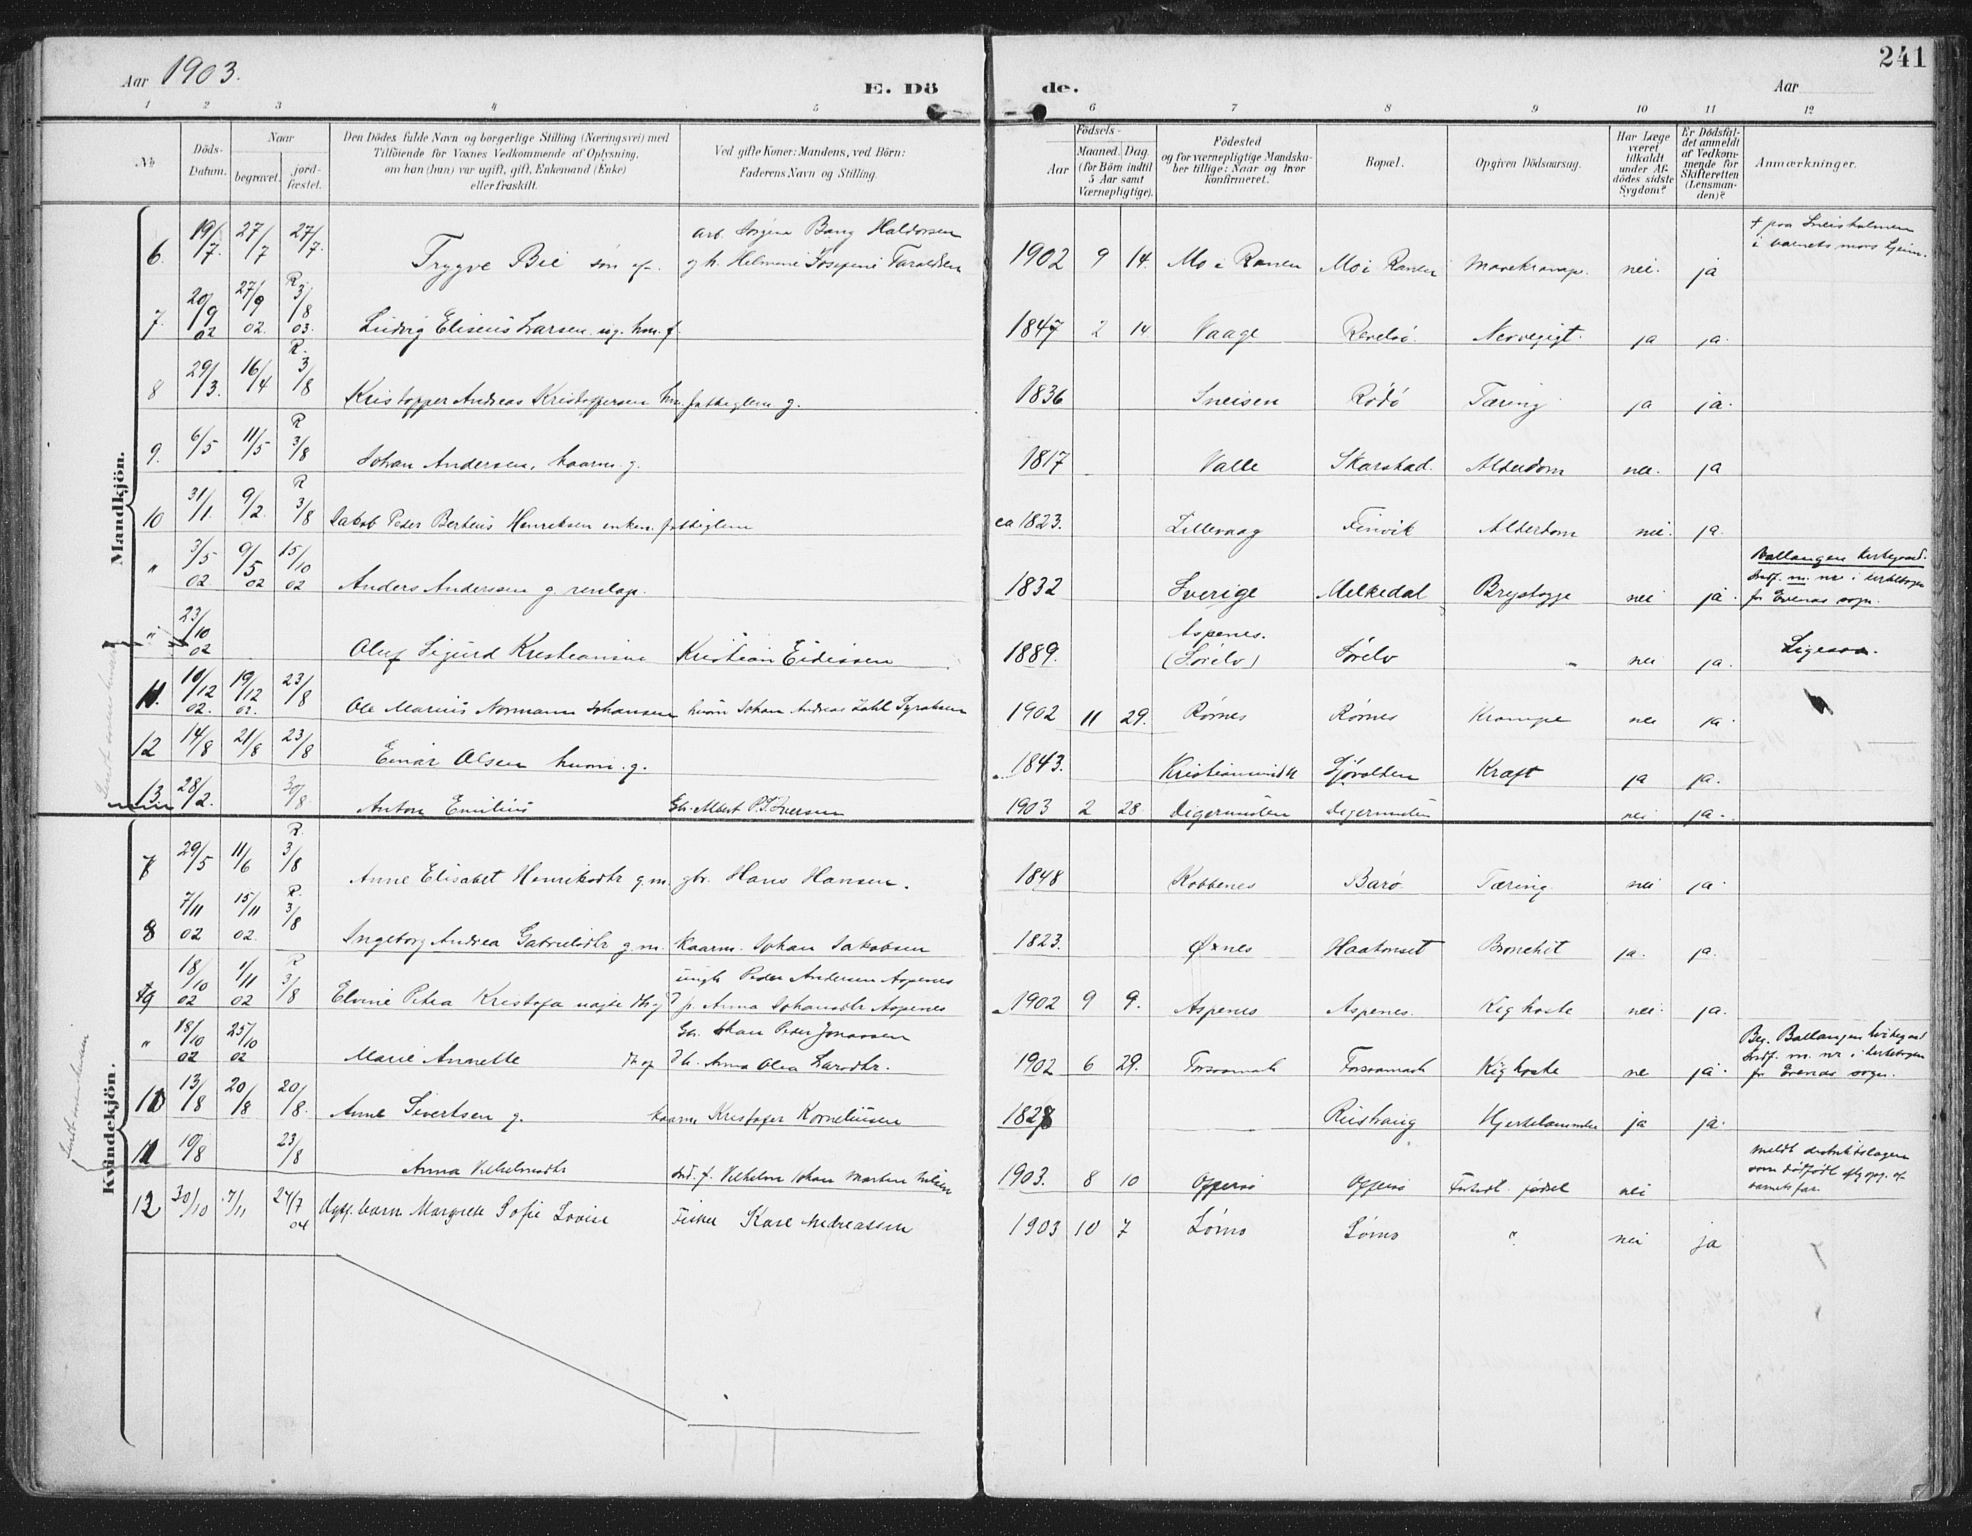 241
Aar 1903.
E. Dö de.
Aar
1 2 3 4 5 6 7 8 9 10 11 12
No
Döds-Datum.
Naar
begravet.
jord-fæstet.
Den Dödes fulde Navn og borgerlige Stilling (Næringsvei) med
Tilföiende for Voxnes Vedkommende af Oplysning,
om han (hun) var ugift, gift, Enkemand (Enke)
eller fraskilt.
Ved gifte Koner: Mandens, ved Börn:
Faderens Navn og Stilling.
Födsels-
Aar
Maaned. Dag
(for Börn indtil
5 Aar samt
Værnepligtige).
Födested
og for værnepligtige Mandska-
ber tillige: Naar og hvor
konfirmeret.
Bopæl.
Opgiven Dödsaarsag.
Har Læge
været
tilkaldt
under Af-
dödes sidste
Sygdom?
Er Dödsfal-
det anmeldt
af Vedkom-
mende for
Skifteretten
(Lensman-
den)?
Anmærkninger.
Mandkjön.
6. 19/7. 27/7 27/7. Trygve Bie søn af arb. Jørgen Bang Haldorsen
og h. Helmine Josefine Taraldsen 1902 9 14. Mo i Ranen Mo i Ranen nei. ja
7. 20/9 02 27/9 02. R 3/8 03. Ludvig Eliseus Larsen ug. 1847 2 14 Vaage Nervegigt. ja ja.
8 29/3. 16/4 R. 3/8 Kristopper Andreas Kristoffersen g. 1836 Sneisen Rödö Tæring ja ja.
9. 6/5 11/5 R 3/8 Johan Andersen, kaarm. g. 1817 Valle Skarstad. Alderdom nei. ja
10 31/1. 9/2. R 3/8 Jakob Peder Berteus Henriksen enkem. fattiglem ca 1823. Lillevaag Finvik Alderdom nei. ja.
" 3/5 02. 9/5 02 15/10 02 Anders Andersen g renlap. 1832 Sverige Melkedal Brystsyge nei ja. Ballangen kirkegaard.
Indf. m. nr i kirkebogen
for Evenes sogn.
" 23/10 02 Oluf Sigurd Kristiansen Kristian Eidissen 1889. Aspenes.
(Sørelv) Sørelv " nei ja. Ligesaa.
11. 10/12 02. 19/12 02. 23/8 Ole Marius Normann Johansen husm Johan Andreas Zahl 1902 11 29. Rørnes Rørnes Krampe nei ja.
12 14/8 21/8 23/8 Einar Olsen husm. g. 1843. Kristiansund Kræft ja ja.
13. 28/2. 30/8 Anton Emilius Gbr. Albert P. Iversen 1903 2 28. Digermulen Digermulen nei ja.
Kvindekjön.
7 29/5 11/6 R 3/8 Anne Elisabet Henriksdtr g.m. gbr. Hans Hansen. 1848 Kobbenes Barø Tæring. nei ja.
8 7/11 02 15/11 02. R. 3/8 Ingeborg Andrea Gabrielsdtr g.m. kaarm. Johan Jakobsen 1823. Øxnes Haakonset Bronchit ja. ja.
9 18/10 02 1/11 02 R 3/8 Elvine Petra Kristofa uægte dtr af ungk Peder Andersen Aspenes
p. Anna Johansdtr Aspenes 1902 9 9. Aspenes Aspenes. Kighoste nei. ja.
" 18/10 02 25/10 02 Marie Annette dtr af Gbr. Johan Peder Jonassen
Hr. Anna Olea Larsdtr. 1902 6 29. Forsaamark Forsaamark Kighoste nei ja. Beg. Ballangen kirkegaard
Indf. m. nr i kirkebogen
for Evenes sogn.
10 13/8 20/8 20/8. Anne Sivertsen g. kaarm Kristofer Korneliusen 1828 Riishaug ja ja.
11 10/8 23/8 Anna Vilhelmsdtr ind. f. Vilhelm Johan Martin Nilsen 1903. 8 10 Offersö Offersö födsel nei meldt distriktslægen
som dødfødt eftg opg. af
barnets far.
12 30/10 7/11 24/7 04 Margrete Sofie Lovise Fisker Karl Andreassen 1903 10 7 Sømo Sømo " nei ja